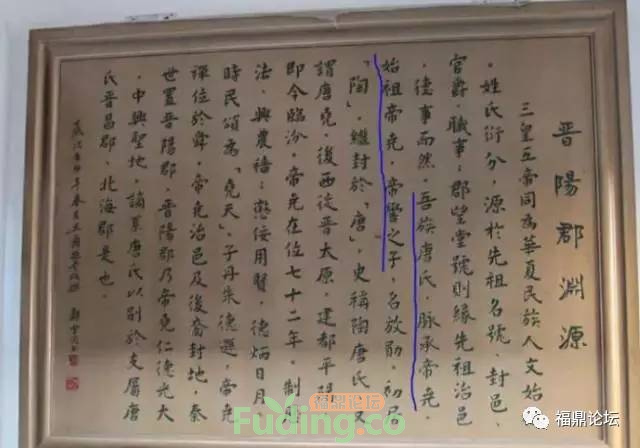 晉陽郡淵源
三皇五帝同為華夏民族人文始
。姓氏衍分,源於先祖名號、封邑、
官爵、職事;郡望堂號則緣先祖治邑
、德事而然。吾族唐氏,脉承帝堯。
始祖帝堯,帝嚳之子,名放勛,初居
「陶」,繼封於「唐」,史稱陶唐氏,又
謂唐堯。後西徙晉太原,建都平陽,
即今臨汾。帝堯在位七十二年。制
法,興農穡;懲佞用賢,德炳日月。
時民頌為「堯天」。子丹朱德遜,帝堯
禪位於舜。帝堯治邑及後裔封地,秦
世置晉陽郡,晉陽郡乃帝堯仁德光大
、中興聖地。謫系唐氏以別於支屬唐
氏晉昌郡、北海郡是也。
福鼎论坛
Fuding.co
福鼎论坛